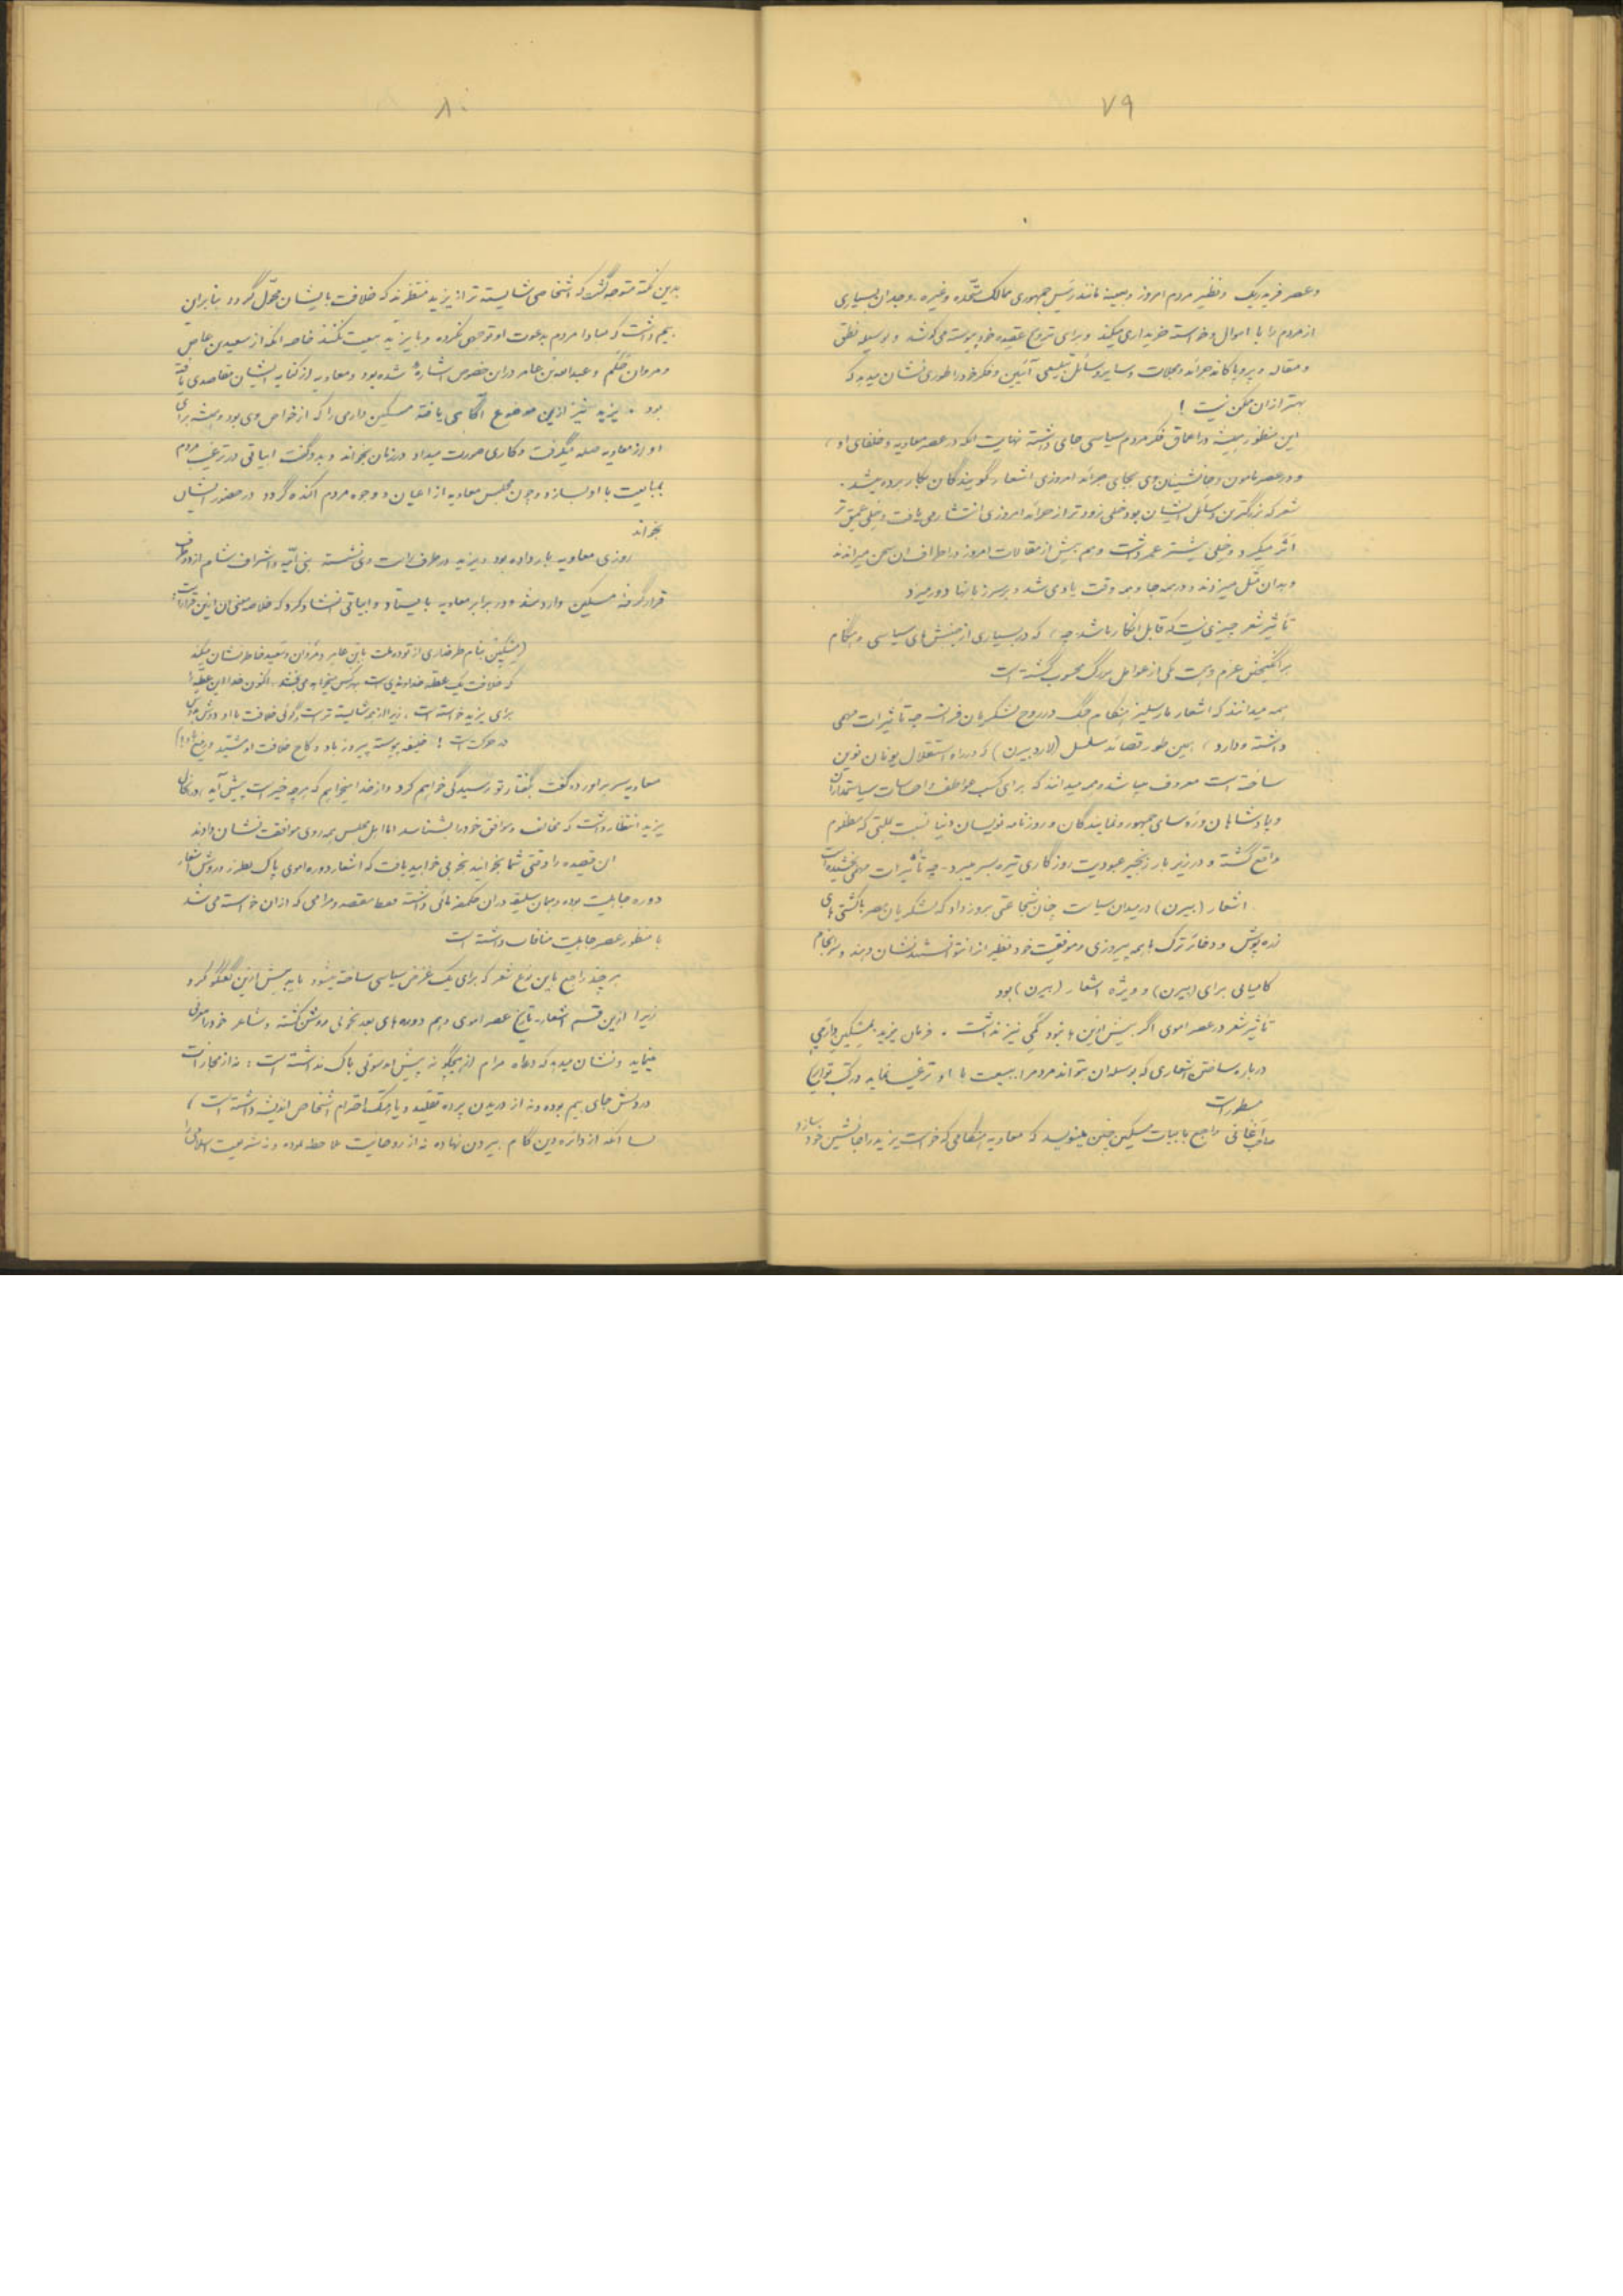 ۷۹
و عصر فردریک و نظیر مردم امروز و بعینه مانند رئیس جمهوری ممالک متحده و غیره، وجدان بسیاری
از مردم را با اموال و خواسته خریداری میکند و برای ترویج عقیده خود پیوسته می کوشد و بوسیله نطق
و مقاله و پروپاکاند جرائد و مجلات و سایر وسائل تبلیغی آئین و فکر خود را طوری نشان میدهد که
بهتر از ان ممکن نیست !
این منظور همیشه در اعماق فکر مردم سیاسی جای داشته نهایت انکه در عصر معاویه و خلفای او ،
و در عصر مامون و جانشینان وی بجای جرائد امروزی اشعار گویندگان بکار برده میشد .
شعر که بزرگترین وسائل ایشان بود خیلی زودتر از جرائد امروزی انتشار می یافت و خیلی عمیق تر
اثر میکرد و خیلی بیشتر عمر داشت و هم بیش از مقالات امروز در اطراف ان سخن میراندند
و بدان مثل میزدند و در همه جا و همه وقت یاد می شد و بر سر زبانها دور میزد
تأثیر شعر چیزی نیست که قابل انکار باشد چه ، که در بسیاری از جنبش های سیاسی و هنگام
برانگیختن عزم و همت یکی از عوامل بزرگ محسوب گشته است
همه میدانند که اشعار مارسلیز هنگام جنگ در روح لشکریان فرانسه چه تأثیرات مهمی
داشته و دارد ، همین طور قصائد سلسل (لارد بیرن) که در راه استقلال یونان نوین
ساخته است معروف میباشد و همه میدانند که برای کسب عواطف و احساسات سیاستمداران
و پادشاهان و رؤسای جمهور و نمایندگان و روزنامه نویسان دنیا نسبت بملتی که مظلوم
واقع گشته و در زیر بار زنجیر عبودیت روزگاری تیره بسر میبرد - چه تأثیرات مهمی بخشیده است
اشعار (بیرن) در میدان سیاست چنان شجاعتی بروز داد که لشکریان مصر با کشتی های
زره پوش و دخائر ترک با همه پیروزی و موفقیت خود نظیر از انتوانستند نشان دهند و سرانجام
کامیابی برای (بیرن) و ویژه اشعار (بیرن) بود
تأثیر شعر در عصر اموی اگر بیش از این ها نبود کمی نیز نداشت . فرمان یزید بمسکین دارمی
درباره ساختن اشعاری که بوسیله ان بتواند مردم را ببیعت با او ترغیب نماید در کتب تواریخ
مسطور است
صاحب آغانی راجع بابیات مسکین چنین مینویسد که معاویه هنگامی که خواست یزید را جانشین خود سازد
۸۰
بدین نکته متوجه گشت که اشخاصی شایسته تر از یزید منتظرند که خلافت بایشان محول گردد بنابراین
بیم داشت که مبادا مردم بدعوت او توجهی نکرده و با یزید بیعت نکنند خاصه انکه از سعید بن عاص
و مروان حکم و عبدالله بن عامر در ان خصوص اشاره شده بود و معاویه از کنایه ایشان مقاصدی یافته
بود . یزید نیز از این موضوع آگاهی یافته مسکین دارمی را که از خواص وی بود و همیشه برای
او از معاویه صله میگرفت و کاری صورت میداد در زمان بخواند و بدو گفت ابیاتی در ترغیب مردم
بمبایعت با او بسازد و چون مجلس معاویه از اعیان و وجوه مردم اکنده گردد در حضور ایشان
بخواند
روزی معاویه بار داده بود و یزید در طرف راست وی نشسته بنی اُمیّه و اشراف شام از دو طرف
قرار گرفته مسکین وارد شد و در برابر معاویه بایستاد و ابیاتی انشاد کرد که خلاصه معنی ان از این قرار است :
(مسکین بنام طرفداری از توده ملت بابن عامر و مروان و سعید خاطر نشان میکند
که خلافت یک عطیه خداوندی است بهر کس بخواهد می بخشد . اکنون خدا این عطیه را
برای یزید خواسته است ، زیرا از همه شایسته تر است و گوئی خلافت با او دوش بدوش
در حرکت است ! خلیفه پیوسته پیروز باد و کاخ خلافت او مشید و رفیع باد!)
معاویه سر براورده گفت بگفتار تو رسیدگی خواهم کرد و از خدا میخواهیم که هر چه خیر است پیش آید
یزید انتظار داشت که مخالف و موافق خود را بشناسد اما اهل مجلس همه روی موافقت نشان دادند
ان قصیده را وقتی شما بخوانید بخوبی خواهید یافت که اشعار دوره اموی پاک بطرز و روش اشعار
دوره جاهلیت بوده و همان سلیقه در ان حکمفرمائی داشته فقط مقصد و مرامی که از ان خواسته می شد
با منظور عصر جاهلیت منافات داشته است
هر چند راجع باین نوع شعر که برای یک غرض سیاسی ساخته میشود باید بیش از این گفتگو کرد
زیرا از این قسم اشعار - تاریخ عصر اموی و هم دوره های بعد بخوبی روشن گشته و شاعر خود را معرفی
مینماید و نشان میدهد که دعاه مرام از هیچگونه پیش امد سوئی باک نداشته است : نه از مجازات
در دلش جای بیم بوده و نه از دریدن پرده تقلید و یا هتک احترام اشخاص اندیشه داشته است ،
بسا انکه از دائره دین گام بیرون نهاده نه از روحانیت ملاحظه نموده و نه شریعت اسلامی را